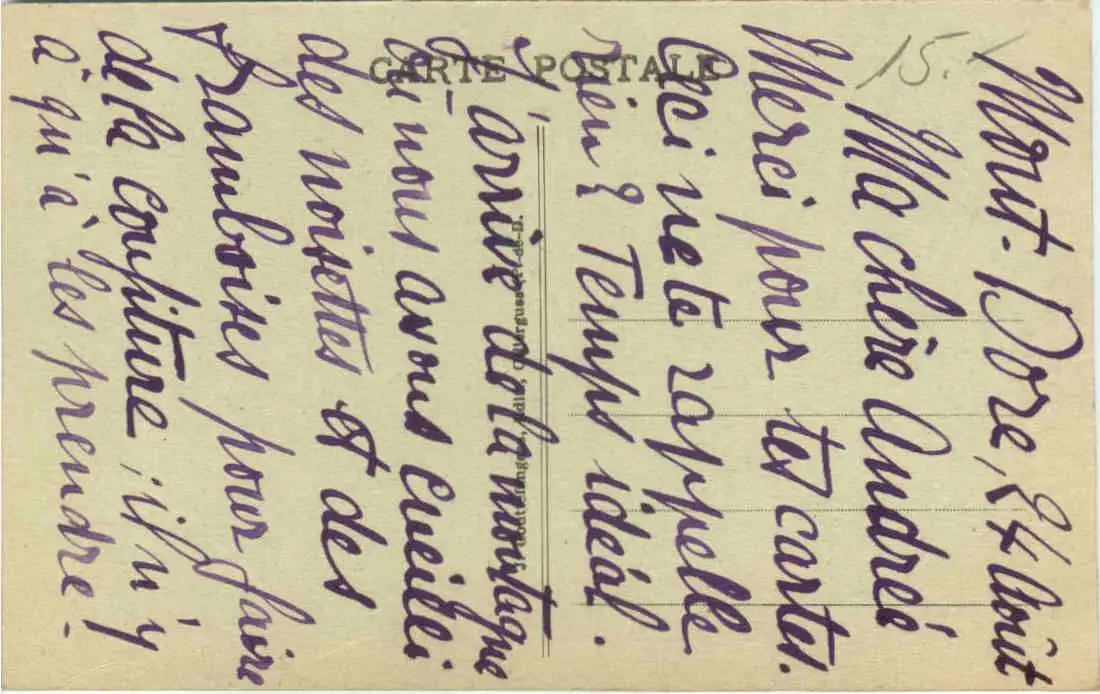 CARTE POSTALE
15.
Mont-Dore, Août
Ma chère Andrée
Merci pour tes cartes.
Ceci ne te rappelle
rien? Temps idéal.
J'arrive de la montagne
où nous avons cueilli
des noisettes et des
framboises pour faire
de la confiture, il n'y
à qu'à les prendre!